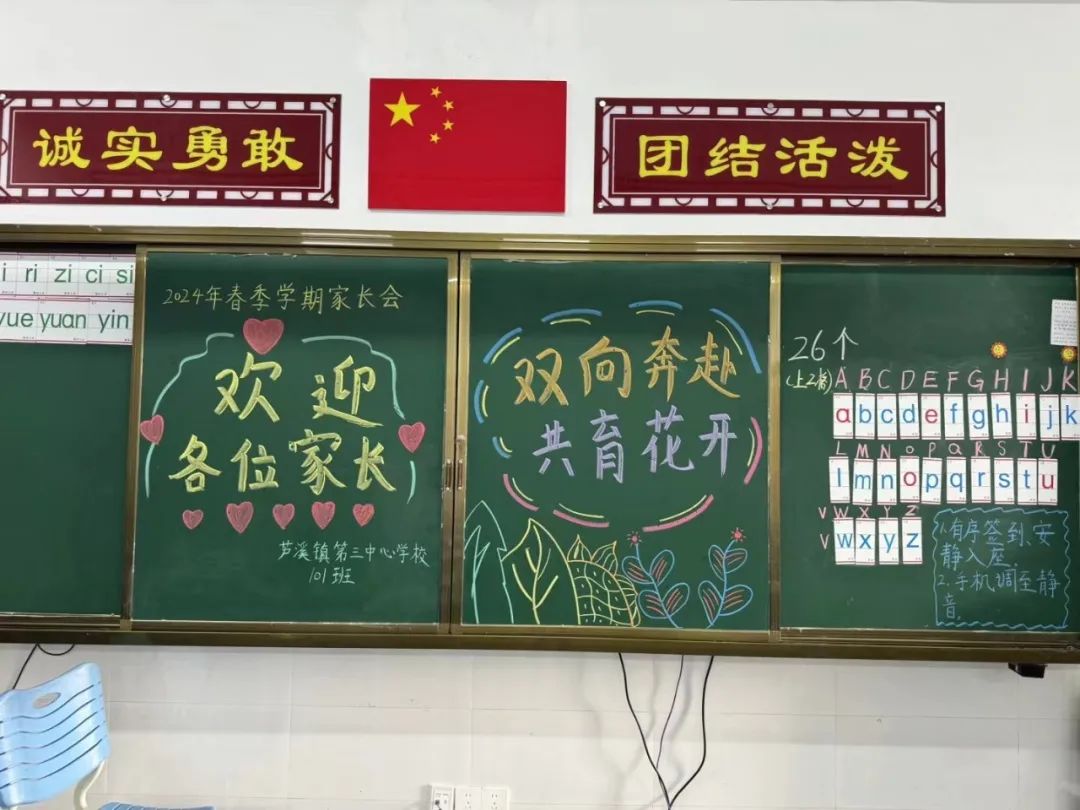 诚实勇敢
团结活泼
i ri zi ci si
yue yuan yin
2024年春季学期家长会
欢迎
各位家长
芦溪镇第三中心学校
101班
双向奔赴
共育花开
26个
(上2省)
A B C D E F G H I J K
a b c d e f g h i j k
L M N O P Q R S T U
l m n o p q r s t u
V W X Y Z
v w x y z
1.有序签到、安
静入座.
2.手机调至静
音.